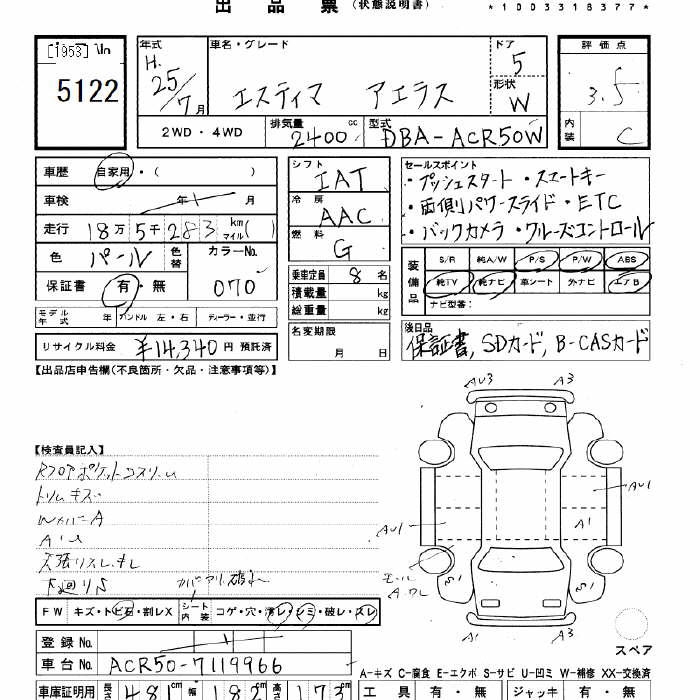 出品票(状態説明書) *1003318377*
[1953]
5122
年式 車名・グレード ドア 評価点
H.25/7月 エスティマ アエラス 5 3.5
形状 W
内装 C
2WD・4WD 排気量 2400 cc 型式 DBA-ACR50W
車歴 自家用・( )
車検 年 月
走行 18万5千283 km(マイル)( )
色 パール 色替 カラーNo. 070
保証書 有・無
モデル年式 年 ハンドル 左・右 ディーラー・並行
リサイクル料金 ¥14,340円 預託済
シフト IAT
冷房 AAC
燃料 G
乗車定員 8名
積載量 kg
総重量 kg
名変期限 月 日
セールスポイント
・プッシュスタート・スマートキー
・両側パワースライド・ETC
・バックカメラ・クルーズコントロール
装備品 S/R 純A/W P/S P/W ABS
純TV 純ナビ 革シート 外ナビ エアB
ナビ型番:
後日品
保証書, SDカード, B-CASカード
【出品店申告欄(不良箇所・欠品・注意事項等)】
【検査員記入】
トリムキズ
下廻りS
AU3 A3
AU1 AU1
A1
S1 S1
A1 A3
スペア
FW キズ・トビ石・割レX シート内装 コゲ・穴・濡レ・シミ・破レ・スレ
登録No.
車台No. ACR50-7119966
A-キズ C-腐食 E-エクボ S-サビ U-凹ミ W-補修 XX-交換済
車庫証明用 長さ 481cm 幅 182cm 高さ 173cm 工具 有・無 ジャッキ 有・無